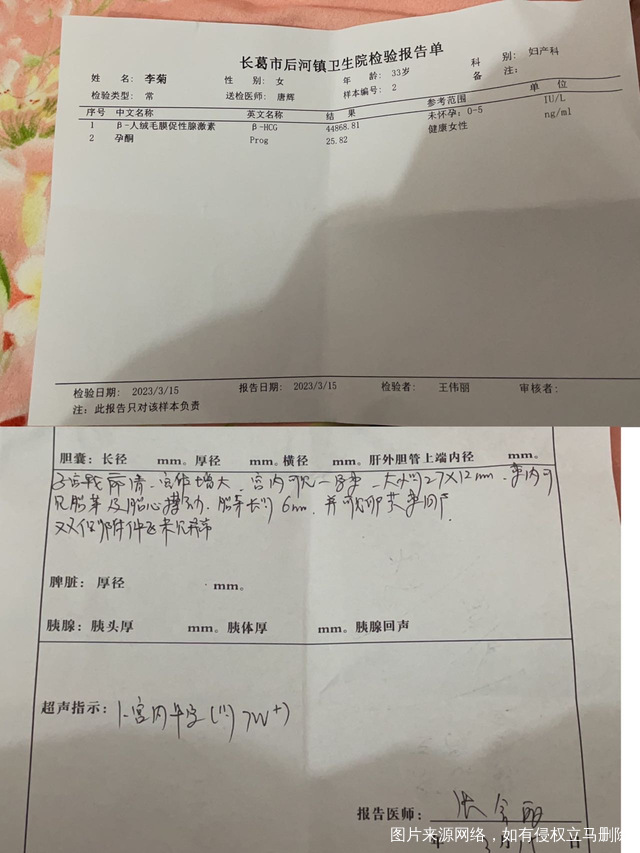 长葛市后河镇卫生院检验报告单
姓 名: 李菊 性 别: 女 年 龄: 33岁 科 别: 妇产科
检验类型: 常 送检医师: 唐辉 样本编号: 2 备 注:
序号 中文名称 英文名称 结 果 参考范围 单 位
1 β-人绒毛膜促性腺激素 β-HCG 44868.81 未怀孕: 0-5 IU/L
2 孕酮 Prog 25.82 健康女性 ng/ml
检验日期: 2023/3/15 报告日期: 2023/3/15 检验者: 王伟丽 审核者:
注: 此报告只对该样本负责
胆囊: 长径 mm。厚径 mm。横径 mm。肝外胆管上端内径 mm。
子宫 清.宫体增大.宫内可见一孕囊.大小约27X12mm.囊内可
见胎芽及胎心搏动.胎芽长约6mm.并可见卵黄囊回声.
双侧附件区未见异常
脾脏: 厚径 mm。
胰腺: 胰头厚 mm。胰体厚 mm。胰腺回声
超声指示: 1.宫内早孕(约7W+)
报告医师: 张
年 3月15日
图片来源网络，如有侵权立马删除